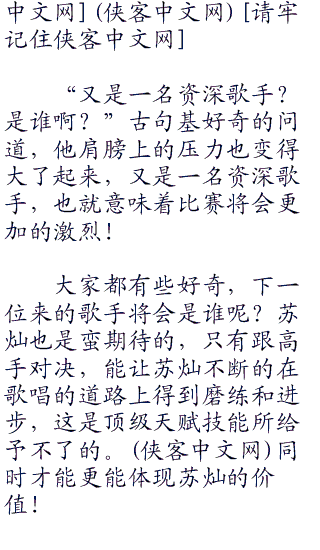 中文网] (侠客中文网) [请牢
记住侠客中文网]
“又是一名资深歌手？
是谁啊？”古句基好奇的问
道，他肩膀上的压力也变得
大了起来，又是一名资深歌
手，也就意味着比赛将会更
加的激烈！
大家都有些好奇，下一
位来的歌手将会是谁呢？苏
灿也是蛮期待的，只有跟高
手对决，能让苏灿不断的在
歌唱的道路上得到磨练和进
步，这是顶级天赋技能所给
予不了的。(侠客中文网)同
时才能更能体现苏灿的价
值！